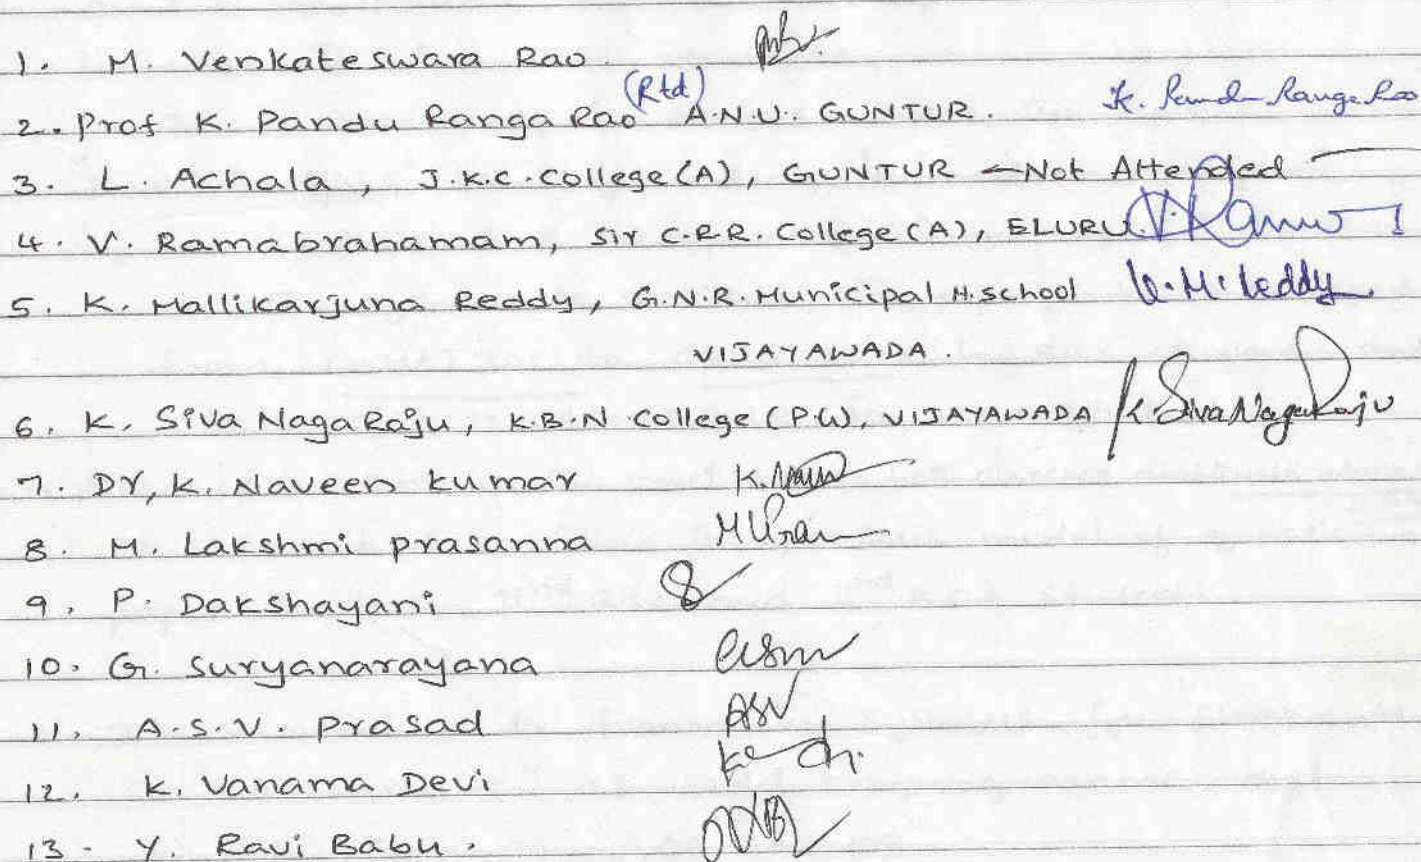 1. M. Venkateswara Rao
2. Prof K. Pandu Ranga Rao (Rtd) A.N.U. GUNTUR. K. Pandu Ranga Rao
3. L. Achala, J.K.C. College (A), GUNTUR — Not Attended
4. V. Ramabrahamam, Sir C.R.R. College (A), ELURU
5. K. Mallikarjuna Reddy, G.N.R. Municipal H. School K. M. Reddy
VIJAYAWADA.
6. K. Siva Naga Raju, K.B.N College (P.G), VIJAYAWADA K. Siva Naga Raju
7. Dr, K. Naveen kumar
8. M. Lakshmi prasanna
9. P. Dakshayani
10. G. Suryanarayana
11. A.S.V. prasad ASV
12. K. Vanama Devi
13. Y. Ravi Babu.